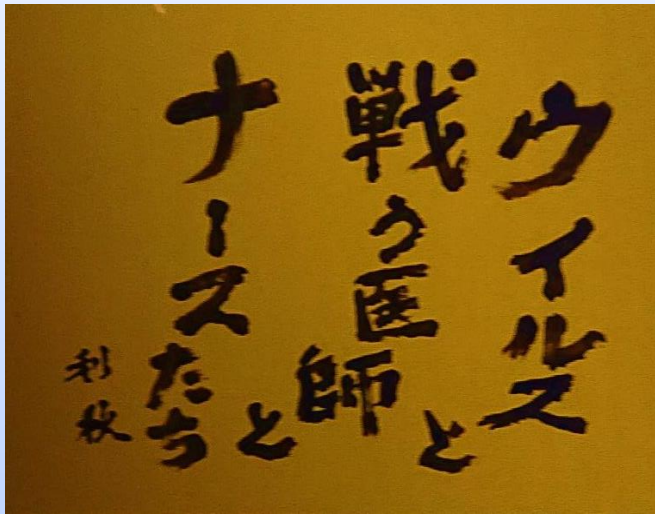 ウイルスと
戦う医師と
ナースたち
利枝